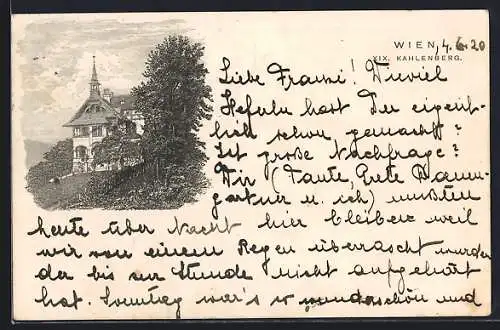 WIEN, 4. 6. 20
XIX. KAHLENBERG.
Liebe Franzi! Wieviel
Heferln hast Du eigent-
lich schon gemacht?
Ist große Nachfrage?
Wir (Tante, Grete Baum-
gartner u. ich) mußten
heute über Nacht hier bleiben weil
wir von einem Regen überrascht wurden
der bis zur Stunde nicht aufgehört
hat. Sonntag war's so wunderschön und